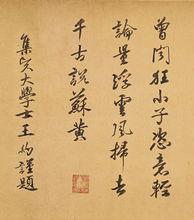 曾聞狂小子恣意輕
論量浮雲風掃去
千古說蘇黃
集賢大學士王約謹題